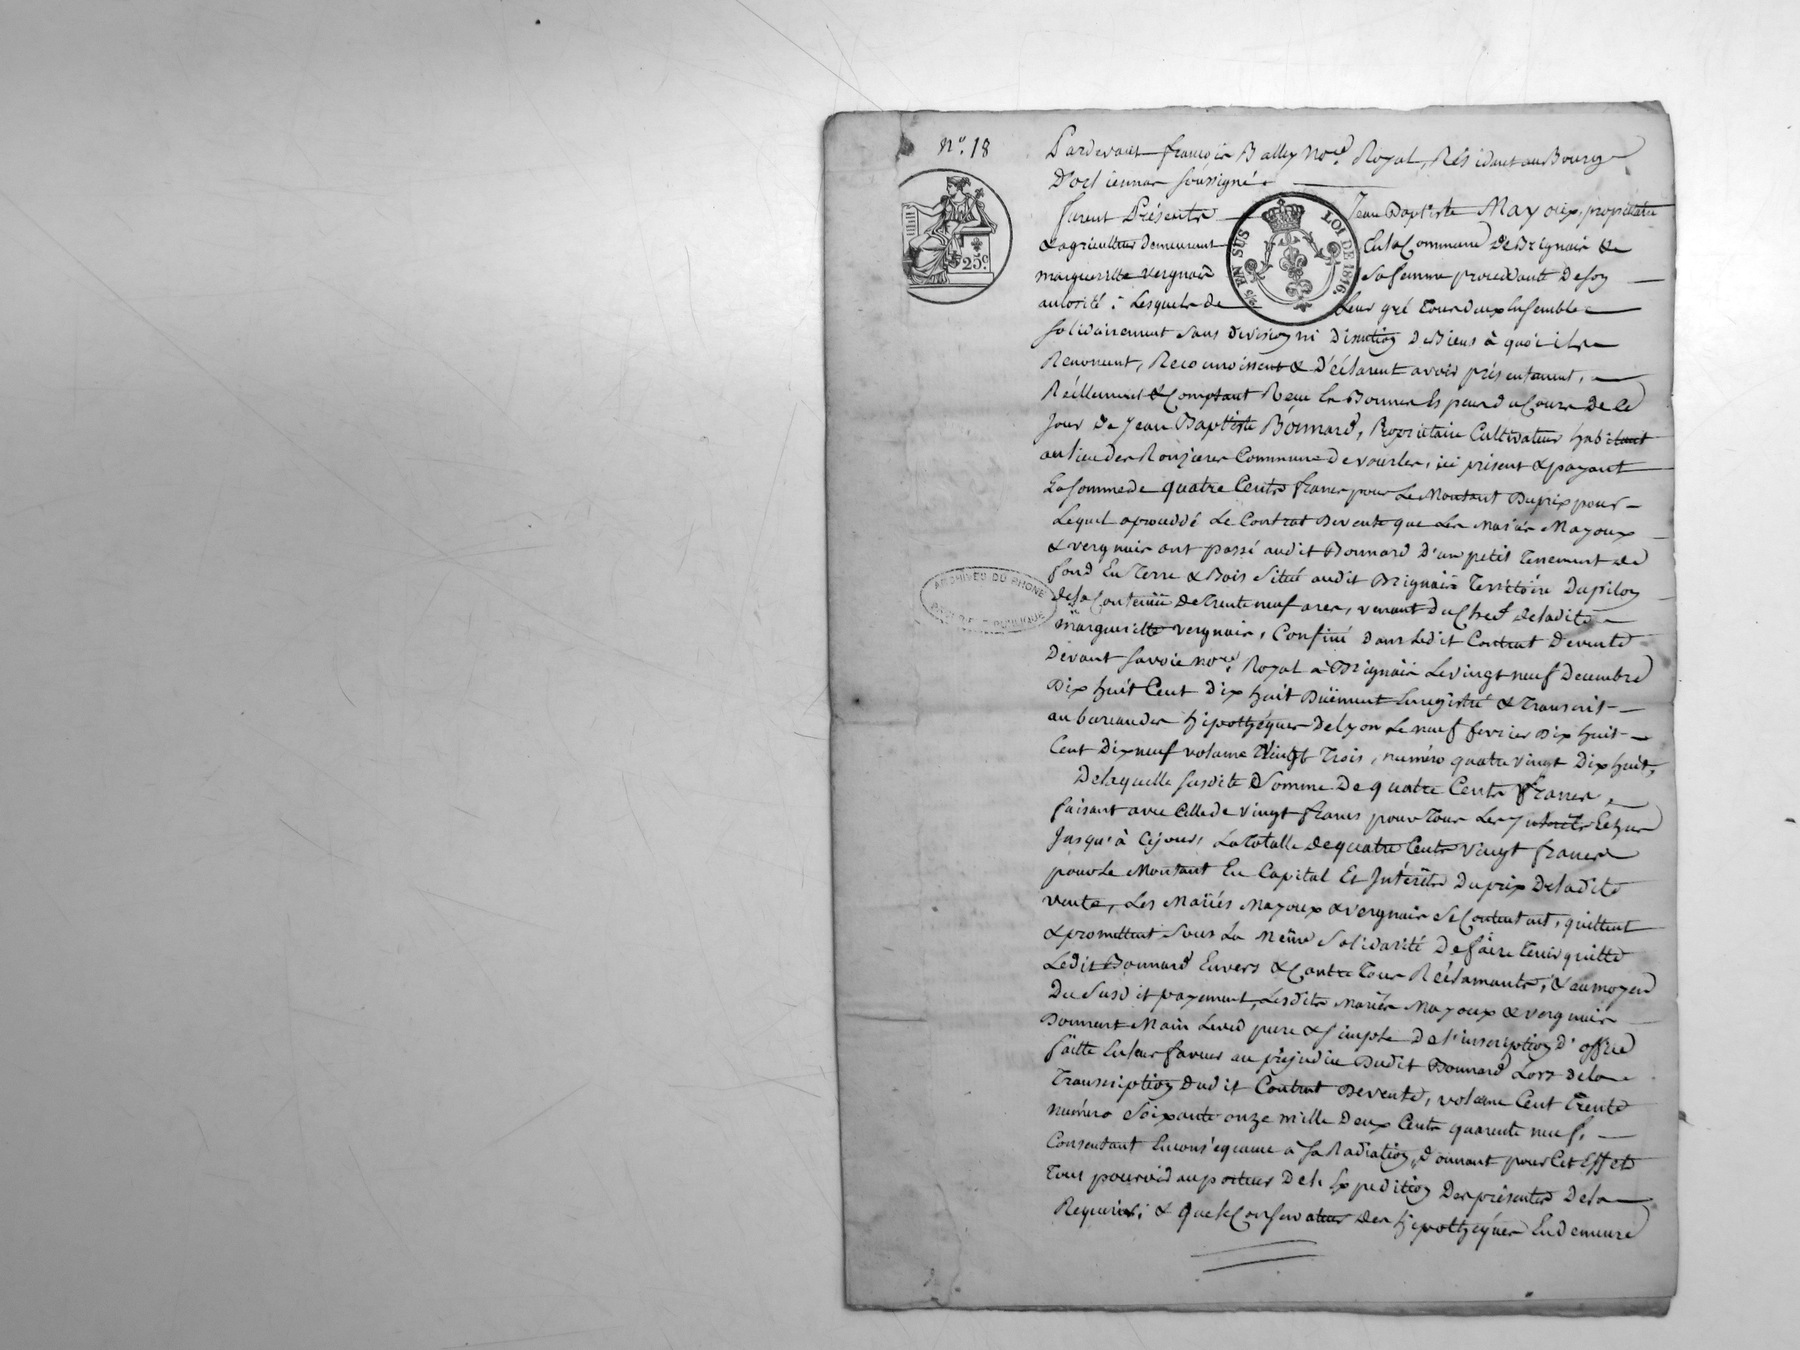 n°. 18
Pardevant françois Balley No.re Royal, Résidant au Bourg
D'orliennas soussigné.
furent Présents Jean Baptiste Mayoux, propriétaire
& agriculteur demeurant En la Commune de Brignais &
margueritte vergnais sa femme procédante de son
autorité : Lesquels de Leur gré tous deux Ensemble
solidairement sans division ni discution de Biens à quoi ils
Renoncent, Reconnoissent & Déclarent avoir présentement,
Réellement & Comptant Reçu En Bonnes Espèces du Cours de Ce
Jour de Jean Baptiste Bonnard, Propriétaire Cultivateur habitant
au lieu des Ronzières Commune de vourles, ici présent & payant
La somme de quatre Cents francs pour Le Montant Du prix pour
Lequel a procédé Le Contrat De vente que Les Mariés Mayoux
& vergnais ont passé audit Bonnard d'un petit tennement de
fond En Terre & Bois Situé audit Brignais Territoire Du pilon
de la Contenüe de trente neuf ares, venant du Chef de ladite
margueritte vergnais, Confiné dans Ledit Contrat De vente
Devant savoie No.re Royal à Brignais Le vingt neuf Decembre
Dix huit Cent dix huit Düement Enregistré & Transcrit
au bureau des hipothéques de Lyon Le neuf fevrier Dix huit
Cent Dix neuf volume Vingt Trois, numéro quatre vingt Dix huit,
De laquelle susdite Somme De quatre Cents francs,
faisant avec Celle de vingt francs pour tous Les Interêts Echus
Jusqu'à Ce jour, La totalle de quatre Cents vingt francs
pour Le Montant En Capital Et Intérêts Du prix De ladite
vente, Les Mariés Mayoux & vergnais Se Contentent, quittent
& promettent sous La Même Solidarité De faire tenir quitte
Ledit Bonnard Envers & Contre tous Réclamants, & au moyen
Du Susdit payement, Lesdits Mariés Mayoux & vergnais
Donnent Main Levée pure & simple De l'inscription D'office
faitte En leur faveur au préjudice Dudit Bonnard Lors de la
Transcription Dudit Contrat De vente, volume Cent Trente
numéro Soixante onze mille Deux Cents quarente neuf,
Consentant En conséquence à Sa Radiation, Donnant pour Cet Effet
tout pouvoir au porteur De l'Expedition Des présentes De la
Requérir; & que Le Conservateur des hipothéques En demeure
25c
2/5 EN SUS LOI DE 1816.
ARCHIVES DU RHONE
PROPRIÉTÉ PUBLIQUE